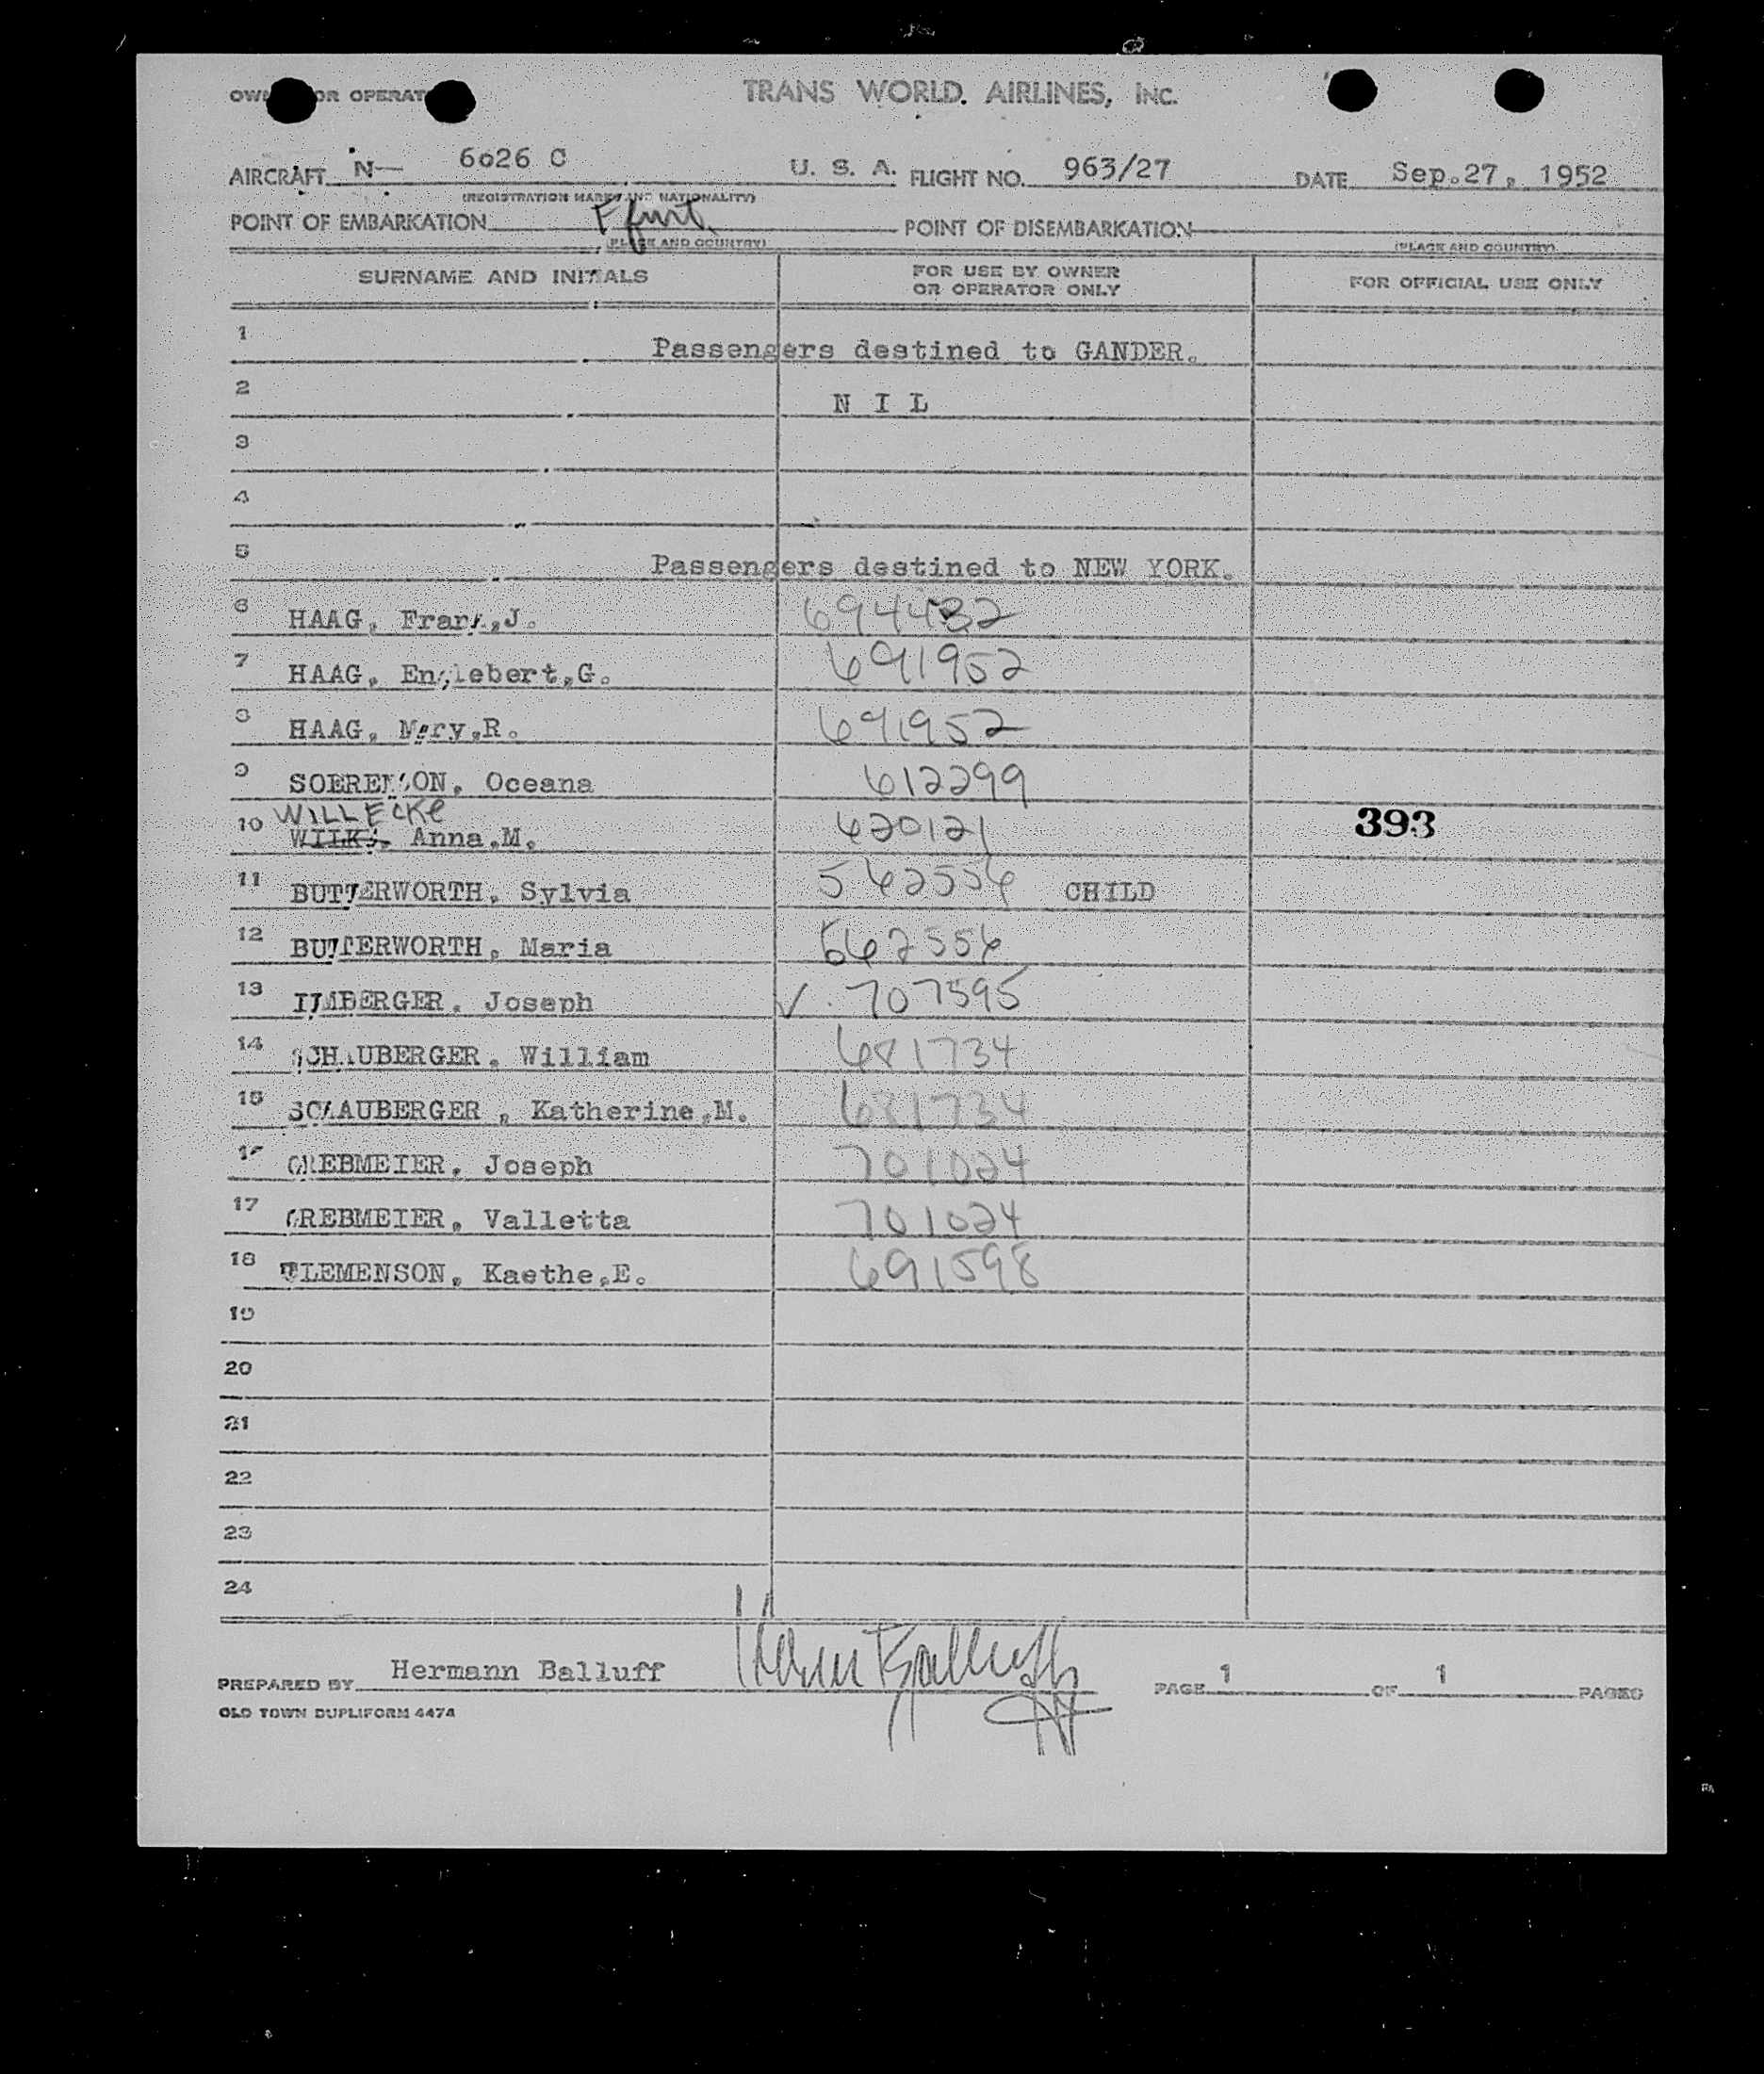 TRANS WORLD AIRLINES, INC.
AIRCRAFT N— 6026 C U. S. A. FLIGHT NO. 963/27 DATE Sep.27, 1952
(REGISTRATION MARKS AND NATIONALITY)
POINT OF EMBARKATION Ffurt. POINT OF DISEMBARKATION
(PLACE AND COUNTRY) (PLACE AND COUNTRY)
SURNAME AND INITIALS FOR USE BY OWNER OR OPERATOR ONLY FOR OFFICIAL USE ONLY
1 Passengers destined to GANDER.
2 N I L
3
4
5 Passengers destined to NEW YORK.
6 HAAG, Frank,J.
7 HAAG, Englebert,G. 691952
8 HAAG, Mary,R. 691952
9 SOERENSON, Oceana 612299
WILLECKE
10 WILKE, Anna,M. 620121 393
11 BUTTERWORTH, Sylvia 562556 CHILD
12 BUTTERWORTH, Maria 562556
13 IMBERGER, Joseph ✓ 707595
14 SCHAUBERGER, William 681734
15 SCHAUBERGER, Katherine,M. 681734
16 GREBMEIER, Joseph 701024
17 GREBMEIER, Valletta 701024
18 CLEMENSON, Kaethe,E. 691598
19
20
21
22
23
24
PREPARED BY Hermann Balluff Herm Balluff PAGE 1 OF 1 PAGES
OLD TOWN DUPLIFORM 4474